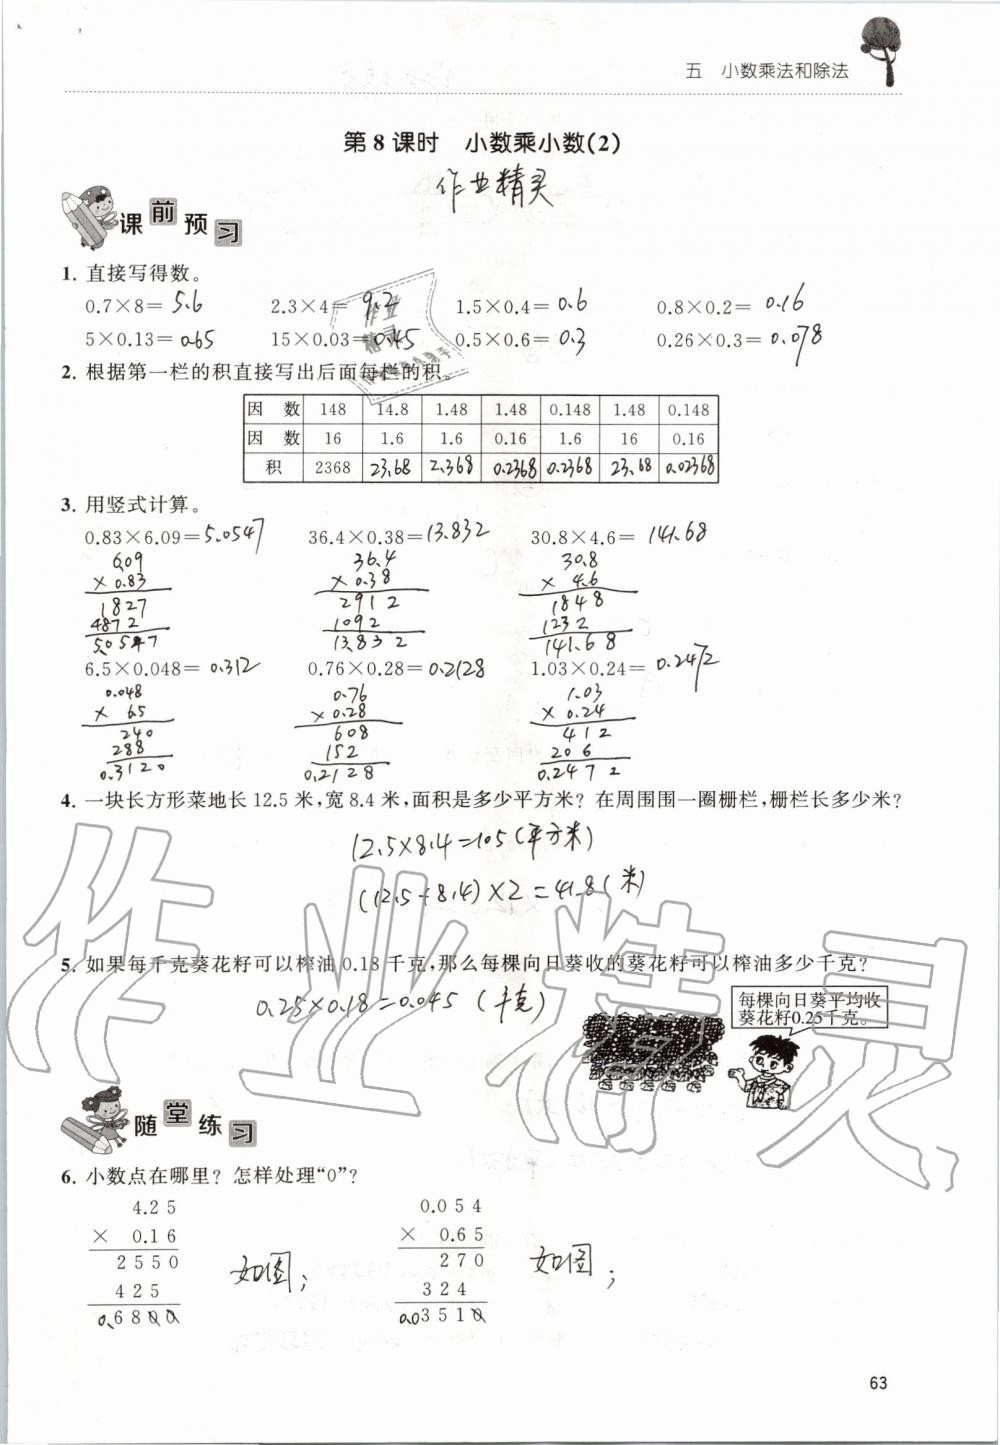 五 小数乘法和除法
第8课时 小数乘小数(2)
作业精灵
课前预习
1. 直接写得数。
0.7×8= 5.6 2.3×4= 9.2 1.5×0.4= 0.6 0.8×0.2= 0.16
5×0.13= 0.65 15×0.03= 0.45 0.5×0.6= 0.3 0.26×0.3= 0.078
2. 根据第一栏的积直接写出后面每栏的积。
因 数 148 14.8 1.48 1.48 0.148 1.48 0.148
因 数 16 1.6 1.6 0.16 1.6 16 0.16
积 2368 23.68 2.368 0.2368 0.2368 23.68 0.02368
3. 用竖式计算。
0.83×6.09=5.0547 36.4×0.38=13.832 30.8×4.6= 141.68
6.09 36.4 30.8
× 0.83 × 0.38 × 4.6
1827 2912 1848
4872 1092 1232
5.0547 13.832 141.68
6.5×0.048= 0.312 0.76×0.28=0.2128 1.03×0.24= 0.2472
0.048 0.76 1.03
× 6.5 × 0.28 × 0.24
240 608 412
288 152 206
0.3120 0.2128 0.2472
4. 一块长方形菜地长12.5米,宽8.4米,面积是多少平方米? 在周围围一圈栅栏,栅栏长多少米?
12.5×8.4=105(平方米)
(12.5+8.4)×2=41.8(米)
5. 如果每千克葵花籽可以榨油0.18千克,那么每棵向日葵收的葵花籽可以榨油多少千克?
0.25×0.18=0.045 (千克)
每棵向日葵平均收
葵花籽0.25千克。
随堂练习
6. 小数点在哪里? 怎样处理“0”?
4.25 0.054
× 0.16 × 0.65
2550 270
425 324
0.6800 0.03510
如图; 如图;
63
作业精灵